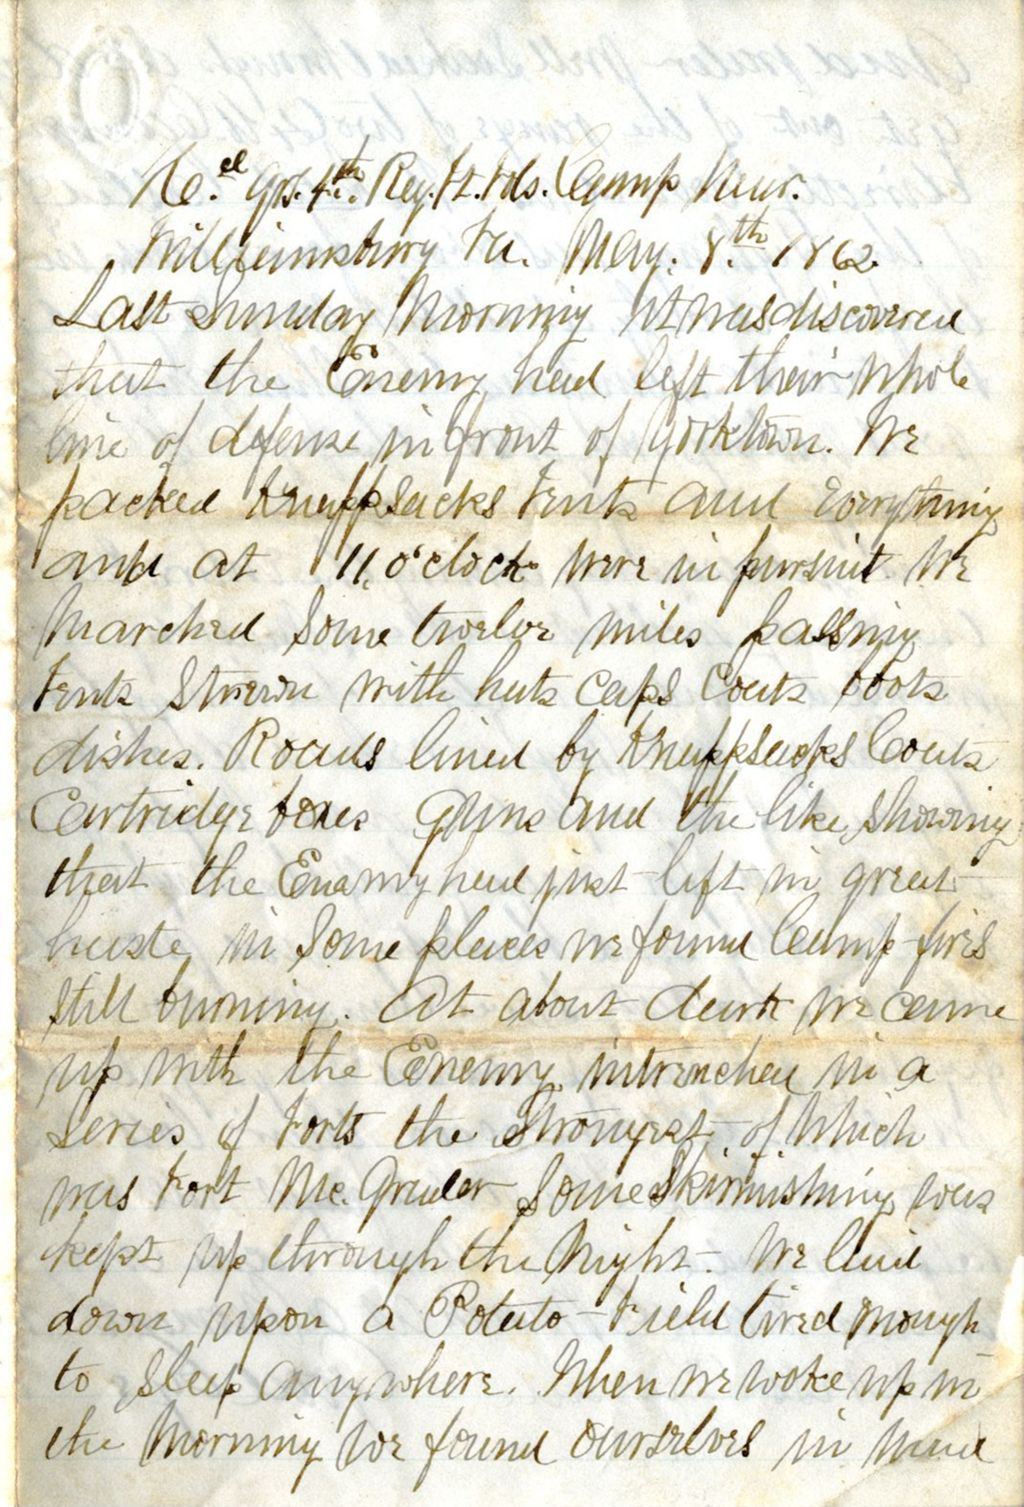 Hd. Qrs. 4th. Reg. Vt. Vols. Camp Near.
Williamsburg Va. May. 8th. 1862.
Last Sunday Morning it was discovered
that the Enemy had left their whole
line of defense in front of Yorktown. We
packed Knappsacks Tents and Everything
and at 11, o'clock were in pursuit. We
Marched Some twelve miles passing
Tents Strewn with hats Caps Coats boots
dishes. Roads lined by Knappsacks Coats
Cartridge boxes Guns and the like, Showing
that the Enamy had just left in great
haste, in Some places we found Camp-fires
Still burning. At about dark we came
up with the Enemy intrenched in a
Series of Forts the Strongest of Which
was Fort Mc. Gruder Some Skirmishing was
kept up through the Night- We laid
down upon a Potato-Field tired enough
to Sleep Anywhere. When we woke up in
the Morning we found ourselves in mud